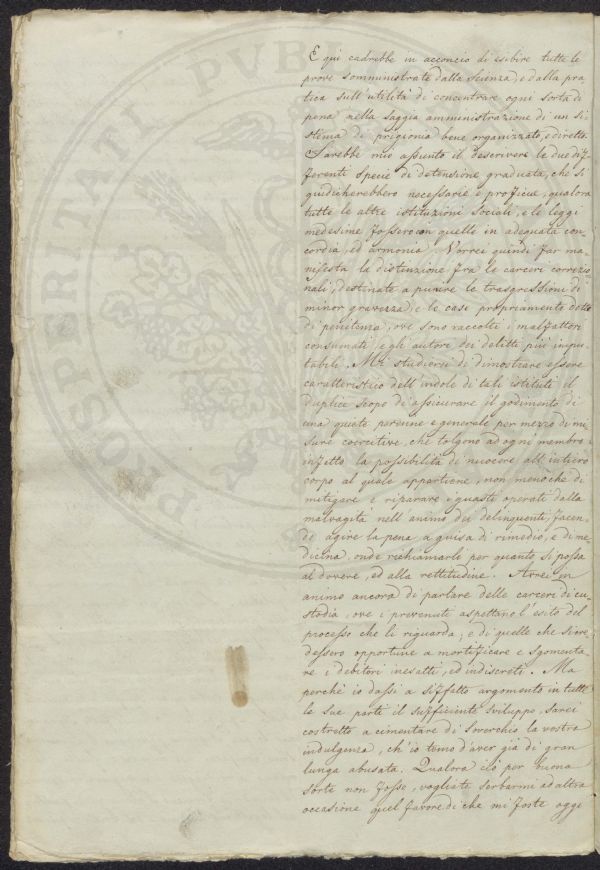 E qui cadrebbe in acconcio di esibire tutte le
prove somministrate dalla scienza, e dalla pra
tica sull'utilità di concentrare ogni sorta di
pena nella saggia amministrazione di un si
stema di prigionia bene organizzato, e diretto.
Sarebbe mio assunto il descrivere le due dif
ferenti specie di detensione graduata, che si
giudicherebbero necessarie e proficue, qualora
tutte le altre istituzioni sociali, e le leggi
medesime fossero con quelle in adeguata con
cordia, ed armonia. Vorrei quindi far ma
nifesta la distinzione fra le carceri correzio
nali, destinate a punire le trasgressioni di
minor gravezza, e le case propriamente dette
di penitenza, ove sono raccolti i malfattori
consumati, e gli autori dei delitti più impu
tabili. Mi studierei di dimostrare essere
caratteristico dell'indole di tali istituti il
duplice scopo di assicurare il godimento di
una quiete perenne e generale per mezzo di mi
sure coercitive, che tolgono ad ogni membro
infetto la possibilità di nuocere all'intiero
corpo al quale appartiene, non meno che di
mitigare e riparare i guasti operati dalla
malvagità nell'animo dei delinquenti, facen
do agire la pena a guisa di rimedio, e di me
dicina, onde richiamarli per quanto si possa
al dovere, ed alla rettitudine. Avrei in
animo ancora di parlare delle carceri di cu
stodia, ove i prevenuti aspettano l'esito del
processo che li riguarda, e di quelle che si cre
dessero opportune a mortificare e sgomenta
re i debitori inesatti, ed indiscreti. Ma
perchè io dassi a siffatto argomento in tutte
le sue parti il sufficiente sviluppo, sarei
costretto a cimentare di soverchio la vostra
indulgenza, ch'io temo d'aver già di gran
lunga abusata. Qualora ciò per buona
sorte non fosse, vogliate serbarmi ad altra
occasione quel favore di che mi foste oggi
PVBLIC